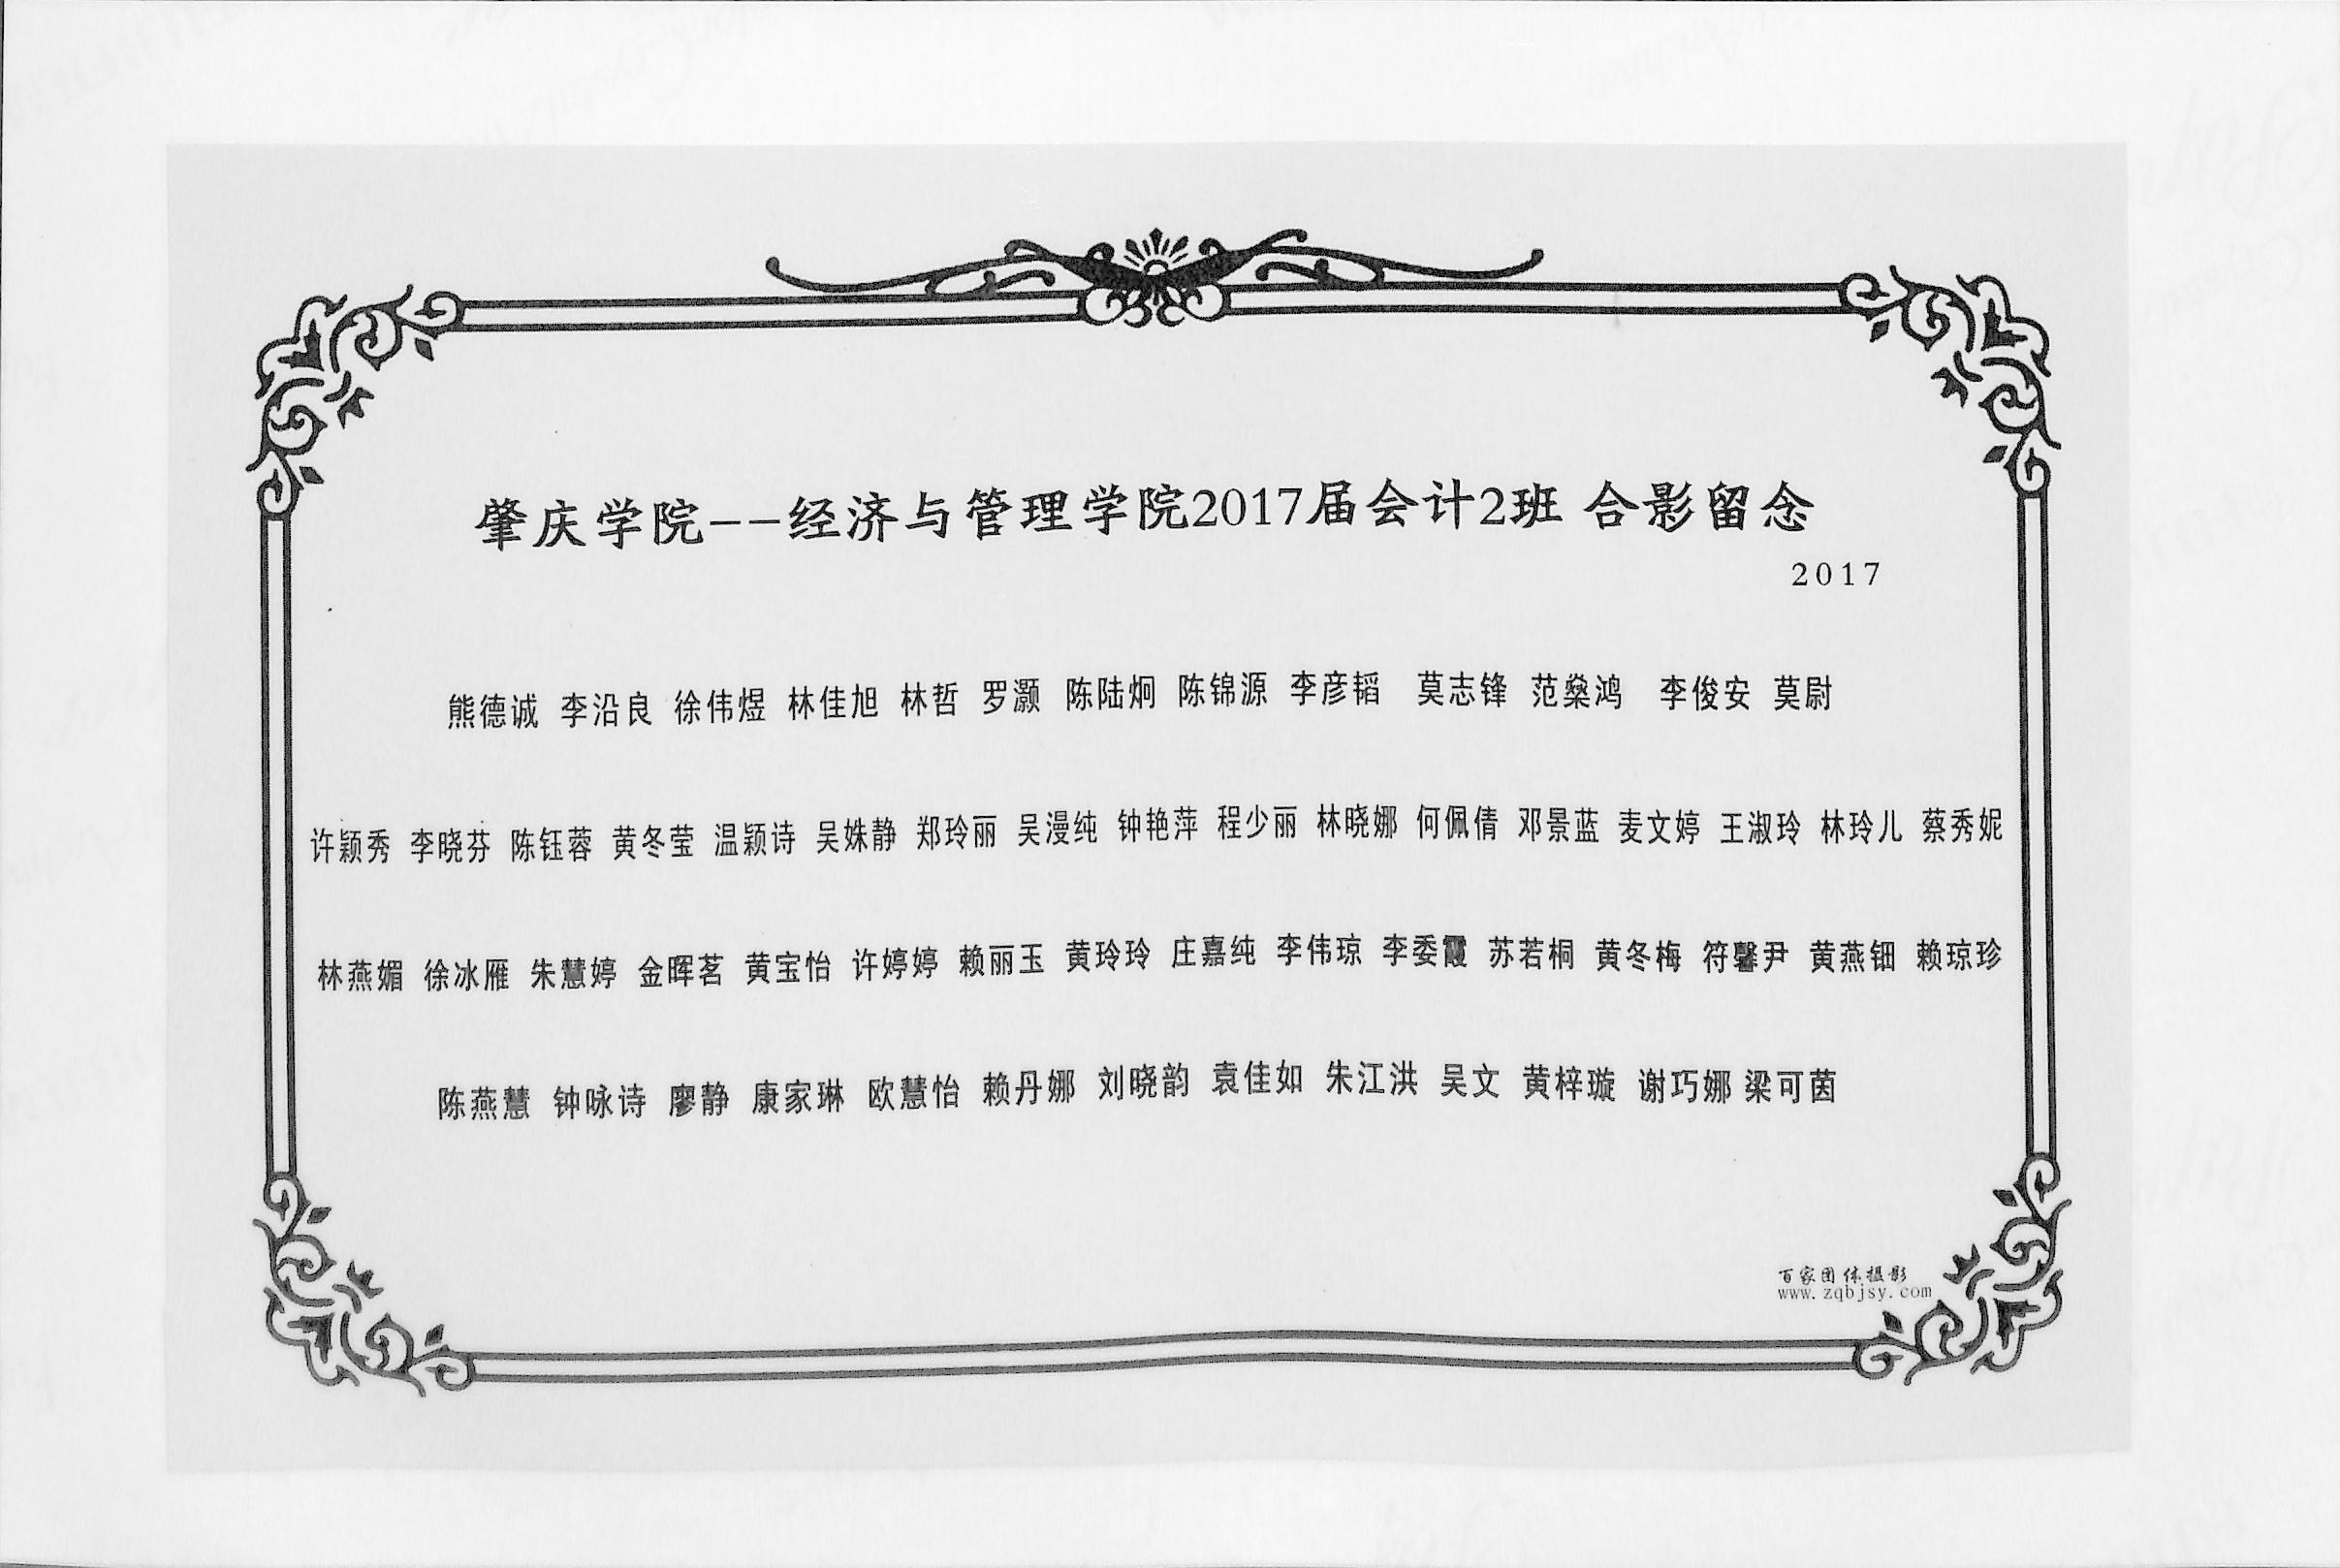 肇庆学院--经济与管理学院2017届会计2班 合影留念
2017
熊德诚 李沿良 徐伟煜 林佳旭 林哲 罗灏 陈陆炯 陈锦源 李彦韬 莫志锋 范燊鸿 李俊安 莫尉
许颖秀 李晓芬 陈钰蓉 黄冬莹 温颖诗 吴姝静 郑玲丽 吴漫纯 钟艳萍 程少丽 林晓娜 何佩倩 邓景蓝 麦文婷 王淑玲 林玲儿 蔡秀妮
林燕媚 徐冰雁 朱慧婷 金晖茗 黄宝怡 许婷婷 赖丽玉 黄玲玲 庄嘉纯 李伟琼 李委霞 苏若桐 黄冬梅 符馨尹 黄燕钿 赖琼珍
陈燕慧 钟咏诗 廖静 康家琳 欧慧怡 赖丹娜 刘晓韵 袁佳如 朱江洪 吴文 黄梓璇 谢巧娜 梁可茵
百家团体摄影
www.zqbjsy.com